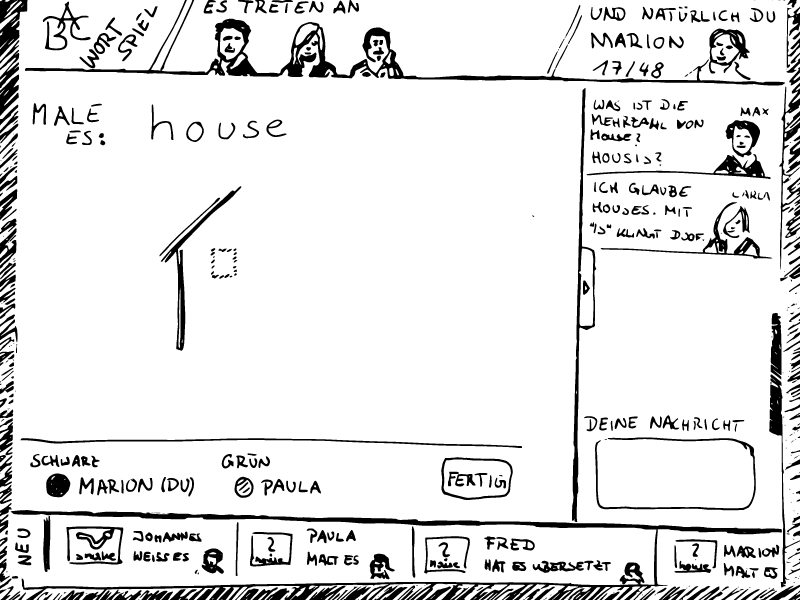 ABC
WORT
SPIEL
ES TRETEN AN
UND NATÜRLICH DU
MARION
17/48
MALE
ES:
house
WAS IST DIE
MEHRZAHL VON
House?
HOUSIS?
MAX
ICH GLAUBE
HOUSES. MIT
"IS" KLINGT DOOF.
CARLA
DEINE NACHRICHT
SCHWARZ
MARION (DU)
GRÜN
PAULA
FERTIG
NEU
snake
JOHANNES
WEISS ES
?
house
PAULA
MALT ES
?
House
FRED
HAT ES ÜBERSETZT
?
house
MARION
MALT ES